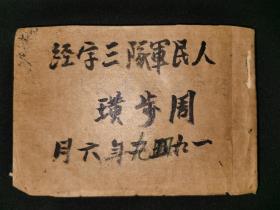 人民軍隊三字經
周步璜
一九四九年六月